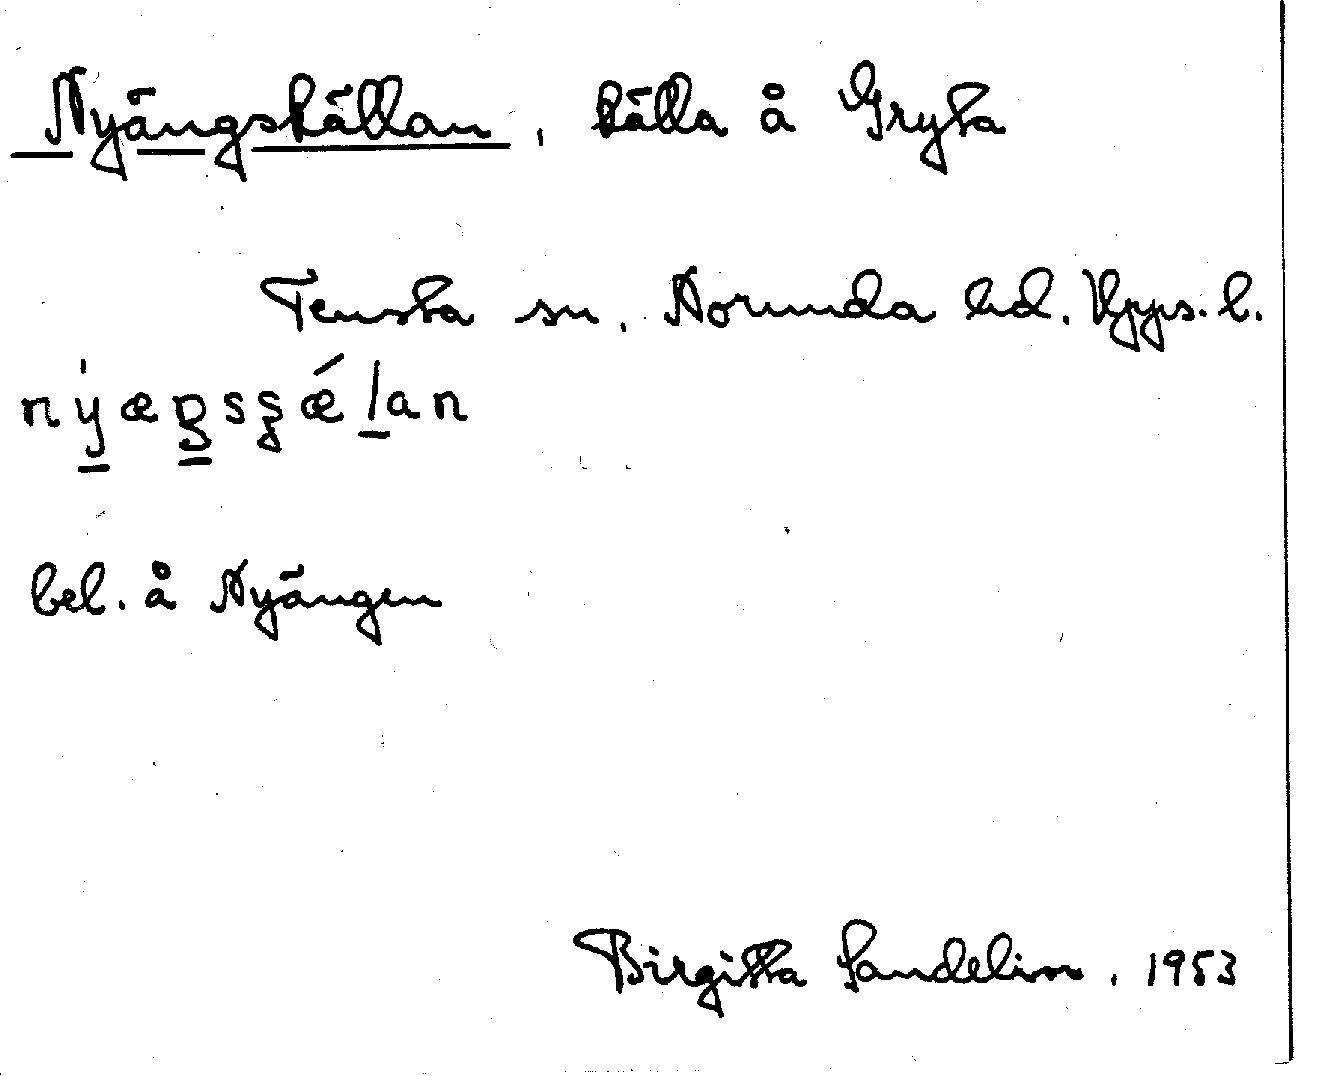 Nyängskällan, källa å Gryta
Tensta sn, Norunda hd. Upps. l.
bel. å Nyängen
Birgitta Sandelin, 1953